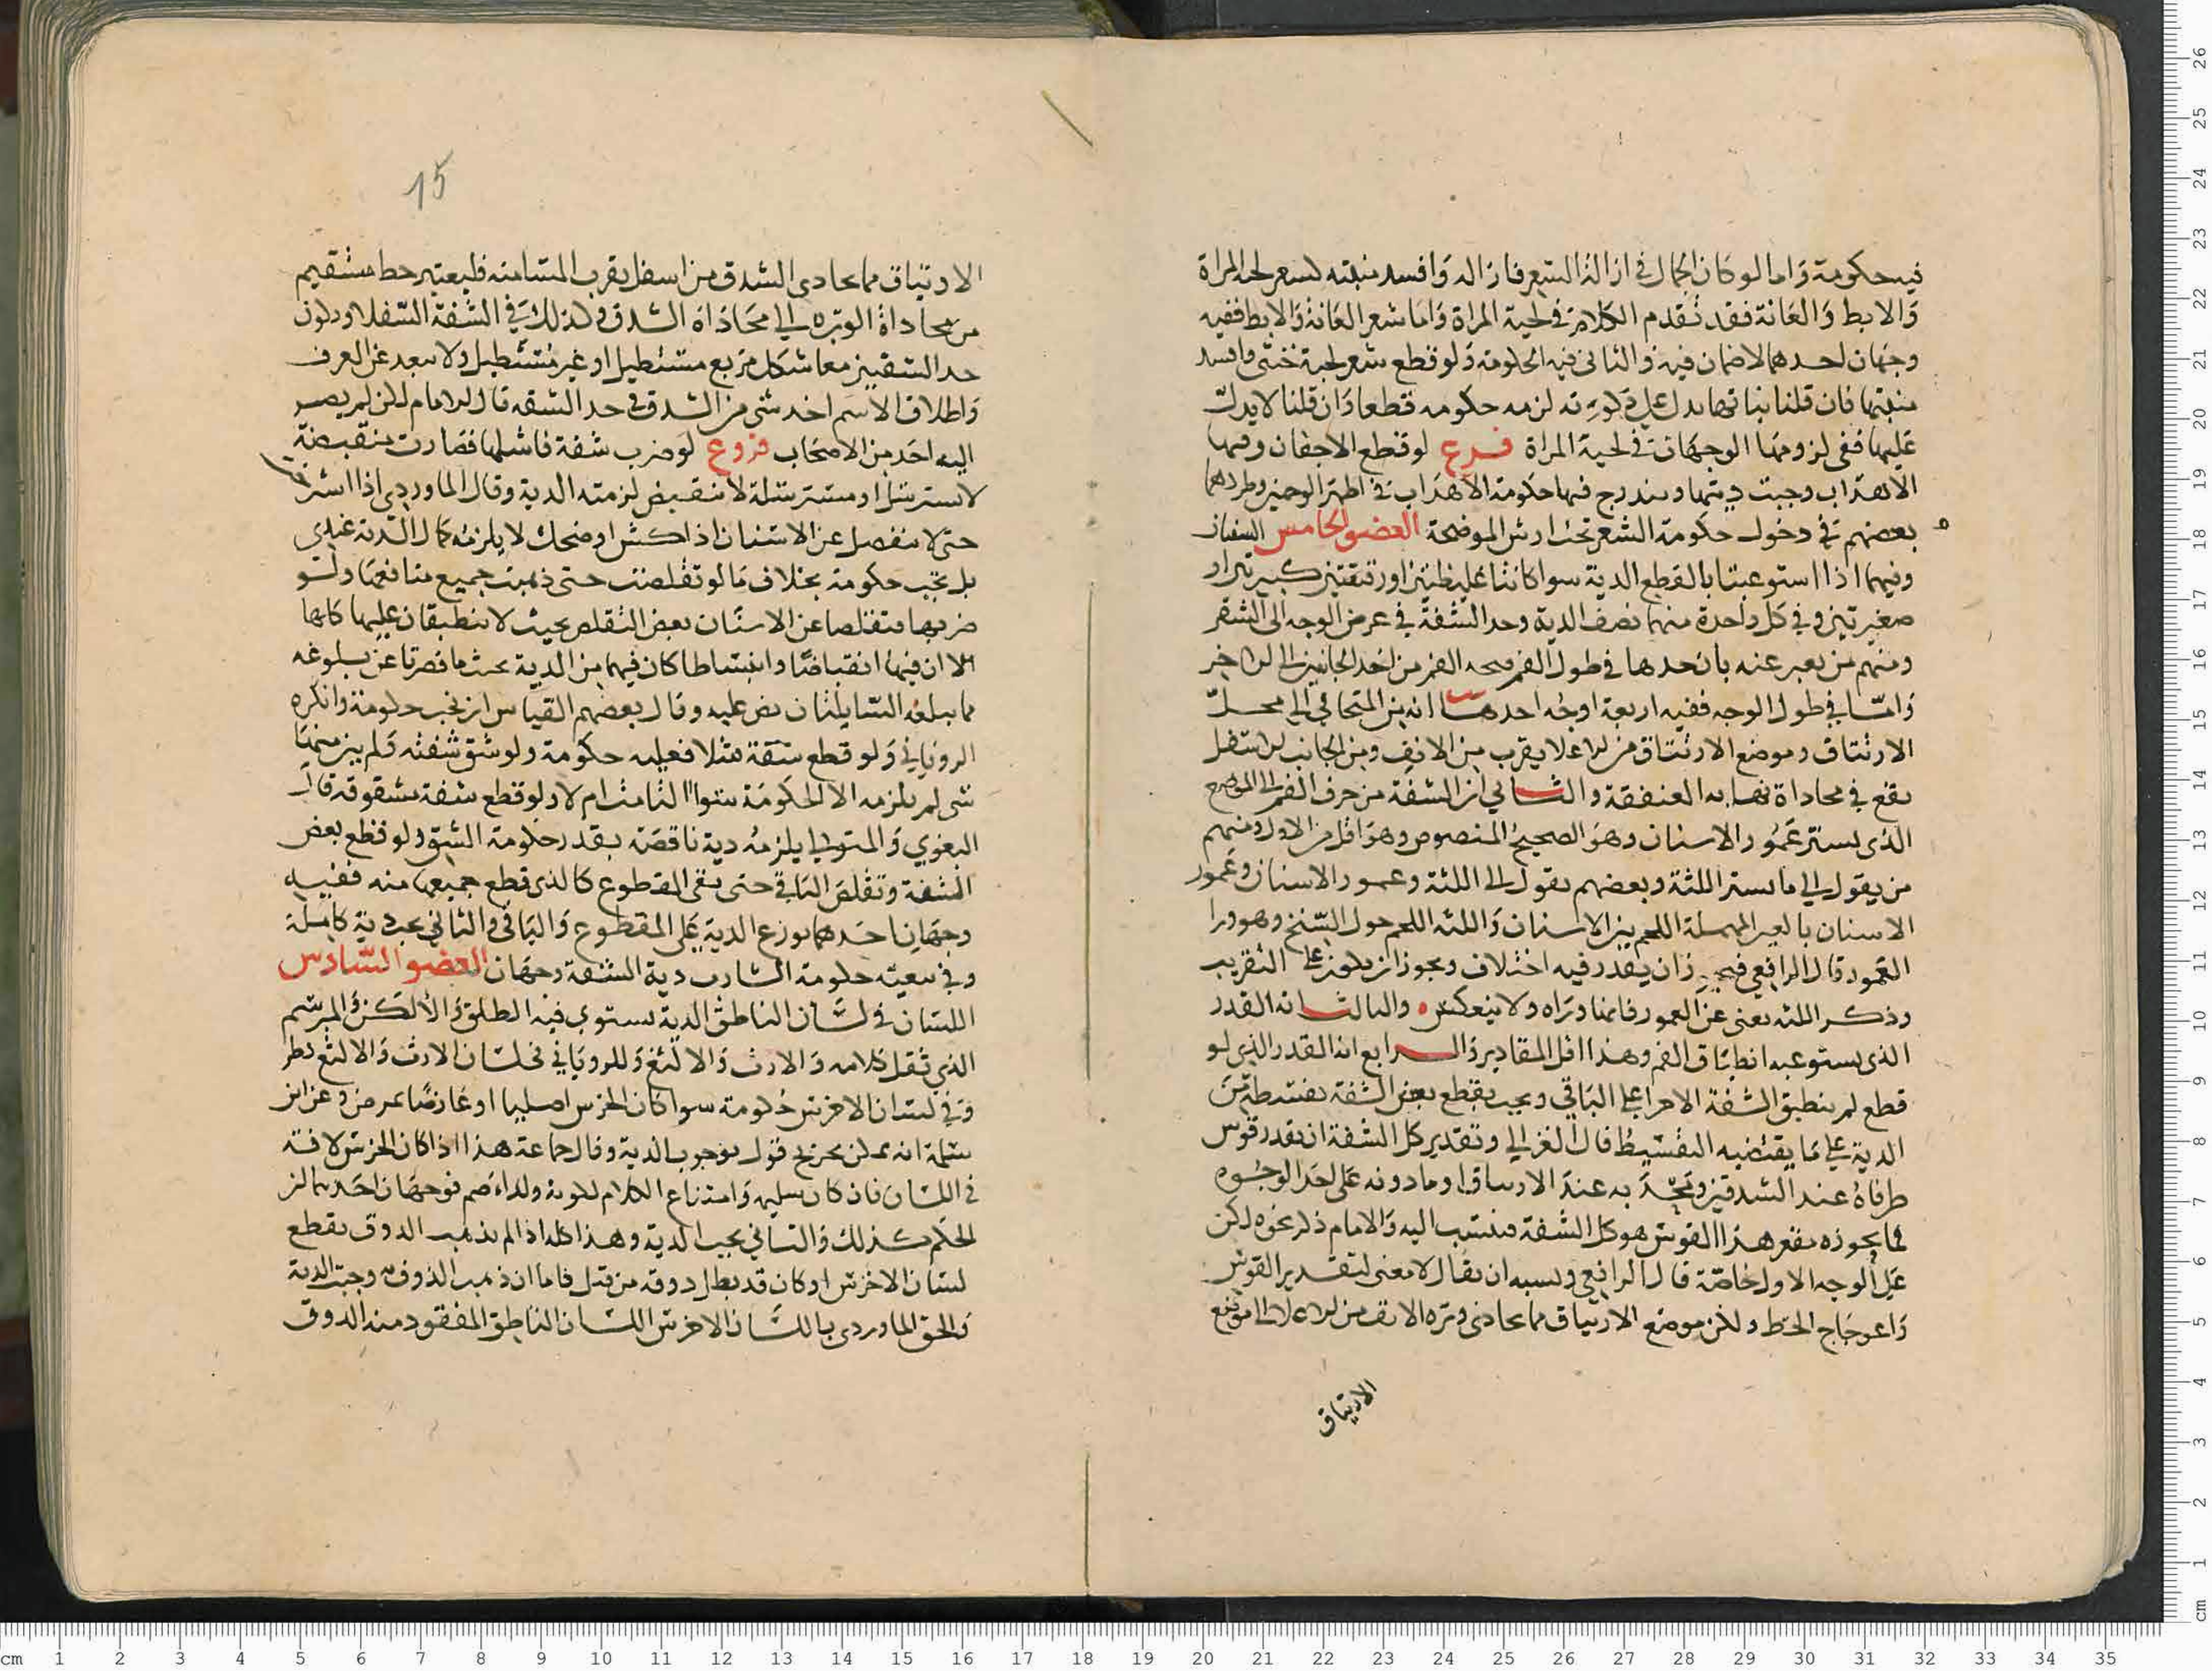 فيه حكومة واما لو كان الجمال في ازالة الشعر فازاله وافسد منبته كشعر لحية المراة
والابط والعانة فقد تقدم الكلام في لحية المراة واما شعر العانة والابط ففيه
وجهان احدهما لا ضمان فيه والثاني فيه الحكومة ولو قطع شعر لحية خنثى وافسد
منبتها فان قلنا بنباتها يدل على ذكورته لزمه حكومه قطعا وان قلنا لا يدل
عليها ففي لزومها الوجهان في لحية المراة فرع لو قطع الاجفان وفيها
الاهداب وجبت ديتها ويندرج فيها حكومة الاهداب في اظهر الوجهين وطردهما
بعضهم في دخول حكومة الشعر تحت ارش الموضحة العضو الخامس الشفتان
وفيهما اذا استوعبتا بالقطع الدية سوا كانتا غليظتين او رقيقتين كبيرتين او
صغيرتين وفي كل واحدة منهما نصف الدية وحد الشفة في عرض الوجه الى الشدقين
ومنهم من يعبر عنه بان حدها في طول الفم فتحه الفم من احد الجانبين الى الاخر
واما في طول الوجه ففيه اربعة اوجه احدها انه من المتجافي الى محل
الارتتاق وموضع الارتتاق من الاعلا يقرب من الانف ومن الجانب الاسفل
يقع في محاداة نهايه العنفقة والثاني ان الشفة من حرف الفم الى الموضع
الذي يستر عمور الاسنان وهو الصحيح المنصوص وهو اقل من الاول ومنهم
من يقول الى ما يستر اللثة وبعضهم يقول الى اللثة وعمور الاسنان وعمور
الاسنان بالعين المهملة اللحم بين الاسنان واللثه اللحم حول السنخ وهو ورا
العمور قال الرافعي فيجوز ان يقدر فيه اختلاف ويجوز ان يكون على التقريب
وذكر اللثه يغني عن العمور فانها وراه ولا ينعكس ه والثالث انه القدر
الذي يستوعبه انطباق الفم وهذا اقل المقادير والرابع انه القدر الذي لو
قطع لم ينطبق الشفة الاخرا على الباقي ويجب بقطع بعض الشفة بقسطه من
الدية على ما يقتضيه التقسيط قال الغزالي وتقدير كل الشفة ان يقدر قوس
طرفاه عند الشدقين وتحدبه عند الارتتاق او مادونه على احد الوجوه
فما يحوزه مقعر هذا القوس هو كل الشفة فينسب اليه والامام ذكر نحوه لكن
على الوجه الاول خاصة قال الرافعي ويشبه ان يقال لا معنى لتقدير القوس
واعوجاج الخط ولكن موضع الارتتاق مما يحادي وتره الانف من الاعلا الى موضع
الارتتاق
15
الارتتاق مما يحادي الشدق من اسفل يقرب المسامته فليعتبر خط مستقيم
من محاداة الوتره الى محاذاة الشدق وكذلك في الشفة السفلا ويكون
حد الشفتين معا شكل مربع مستطيل او غير مستطيل ولا يبعد عن العرف
واطلاق الاسم اخذ شي من الشدق في حد الشفه قال الامام لكن لم يصر
اليه احد من الاصحاب فروع لو ضرب شفة فاشلها فصارت منقبضة
لا تسترسل او مسترسلة لا تنقبض لزمته الدية وقال الماوردي اذا استرختا
حتى لا تنفصل عن الاسنان اذا كشر او ضحك لا يلزمه كمال الدية عندي
بل تجب حكومة بخلاف مالو تقلصت حتى ذهبت جميع منافعها ولو
ضربها فتقلصا عن الاسنان بعض التقلص بحيث لا ينطبقان عليها كلها
الا ان فيها انقباضا وانبساطا كان فيهما من الدية بحيث ما قصرتا عن بلوغه
مما يبلغه السايلتان نص عليه وقال بعضهم القياس ان تجب حكومة وانكره
الروياني ولو قطع شفة شلا فعليه حكومة ولو شق شفته ولم يبن منها
شي لم يلزمه الا الحكومة سوا التامت ام لا ولو قطع شفة مشقوقة قال
البغوي والمتولي يلزمه دية ناقصة بقدر حكومة الشق ولو قطع بعض
الشفة وتقلص الباقي حتى بقي المقطوع كالذي قطع جميعها منه ففيه
وجهان احدهما يوزع الدية على المقطوع والباقي والثاني يجب دية كاملة
وفي تبعية حكومة الشارب دية الشفة وجهان العضو السادس
اللسان في لسان الناطق الدية يستوي فيه الطلق والالكن والمبرسم
الذي ثقل كلامه والارت والالثغ وللروياني في لسان الارت والالثغ نظر
وفي لسان الاخرس حكومة سوا كان الخرس اصليا او عارضا بمرض وعن ابن
سلمة انه يمكن تخريج قول بوجوب الدية وقال جماعة هذا اذا كان الخرس لافة
في اللسان فان كان سليم وامتناع الكلام لكونه ولد اصم فوجهان احدهما ان
الحكم كذلك والثاني يجب الدية وهذا كله اذا لم يذهب الذوق بقطع
لسان الاخرس او كان قد بطل ذوقه من قبل فاما ان ذهب الذوق وجبت الدية
والحق الماوردي باللسان الاخرس اللسان الناطق المفقود منه الذوق